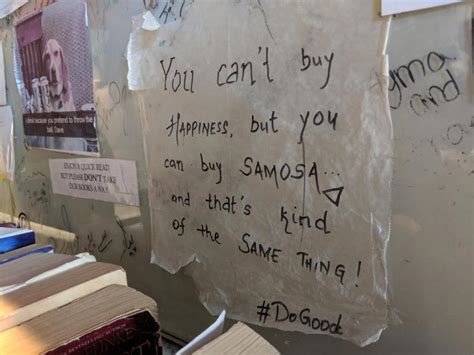 You can't buy
HAPPINESS, but you
can buy SAMOSA...
and that's kind
of the SAME THING!
#DoGood
I drink because you pretend to throw the
ball, Dave
ENJOY A QUICK READ
BUT PLEASE DON'T TAKE
OUR BOOKS A
and